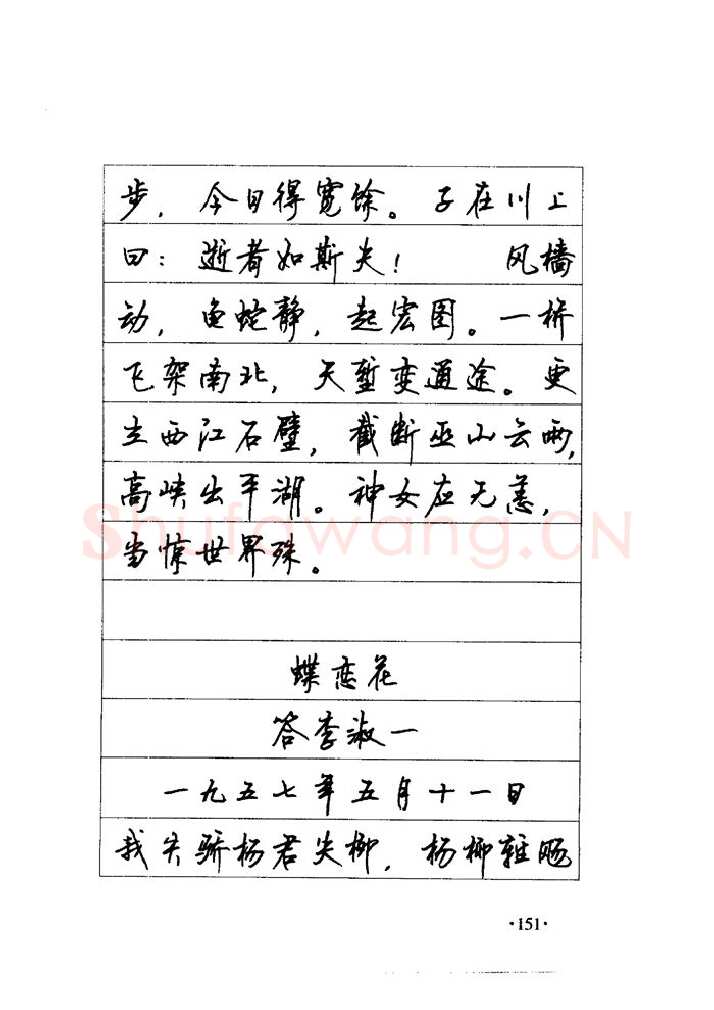 步，今日得宽馀。子在川上
曰：逝者如斯夫！ 风樯
动，龟蛇静，起宏图。一桥
飞架南北，天堑变通途。更
立西江石壁，截断巫山云雨，
高峡出平湖。神女应无恙，
当惊世界殊。
Shufawang.CN
蝶恋花
答李淑一
一九五七年五月十一日
我失骄杨君失柳，杨柳轻飏
·151·